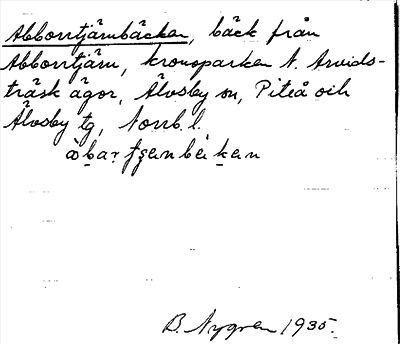 Abborrtjärnbäcken, bäck från
Abborrtjärn, kronoparken N. Arvids-
träsk ägor, Älvsby sn, Piteå och
Älvsby tg, Norrb. l.
B. Nygren 1935.